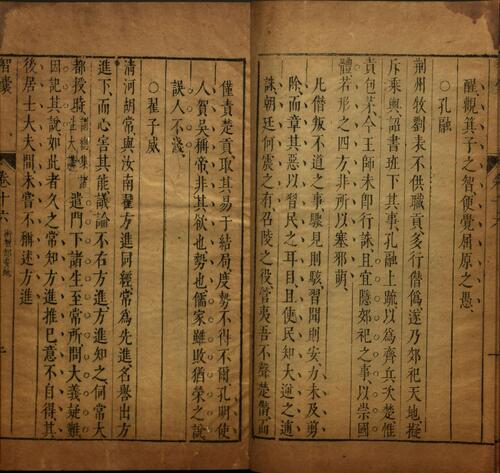 醒觀箕子之智便覺屈原之愚
○孔融
荆州牧劉表不供職貢多行僭偽遂乃郊祀天地擬
斥乘輿詔書班下其事孔融上疏以為齊兵次楚惟
責包茅今王師未即行誅且宜隱郊祀之事以崇國
體若形之四方非所以塞邪萌
凡僭叛不道之事驟見則駭習聞則安力未及剪
除而章其惡以習民之耳目且使民知大逆之逋
誅朝廷何震之有召陵之役管夷吾不聲楚僭而
僅責楚貢取其易于結局度勢不得不爾孔明使
人賀吳稱帝非其欲也勢也儒家雖敗猶榮之說
誤人不淺
○翟子威
清河胡常與汝南翟方進同經常為先進名譽出方
進下而心害其能議論不右方進方進知之伺常大
都授時謂總集諸生大講遣門下諸生至常所問大義疑難
因記其說如此者久之常知方進推己意不自得其
後居士大夫間未嘗不稱述方進
智囊
卷十六